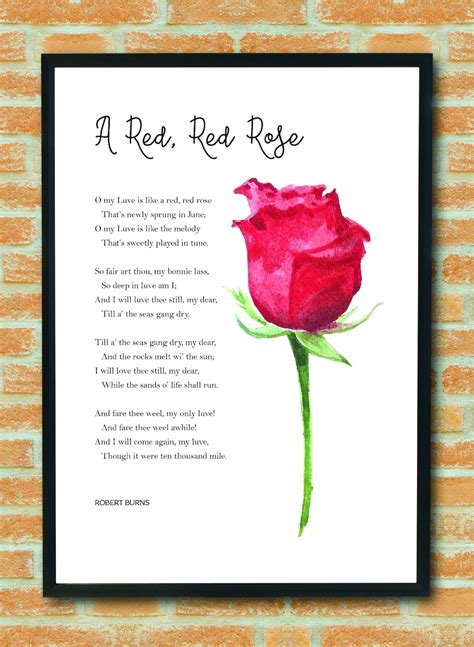 A Red, Red Rose
O my Luve is like a red, red rose
That's newly sprung in June;
O my Luve is like the melody
That's sweetly played in tune.
So fair art thou, my bonnie lass,
So deep in luve am I;
And I will luve thee still, my dear,
Till a' the seas gang dry.
Till a' the seas gang dry, my dear,
And the rocks melt wi' the sun;
I will love thee still, my dear,
While the sands o' life shall run.
And fare thee weel, my only luve!
And fare thee weel awhile!
And I will come again, my luve,
Though it were ten thousand mile.
ROBERT BURNS